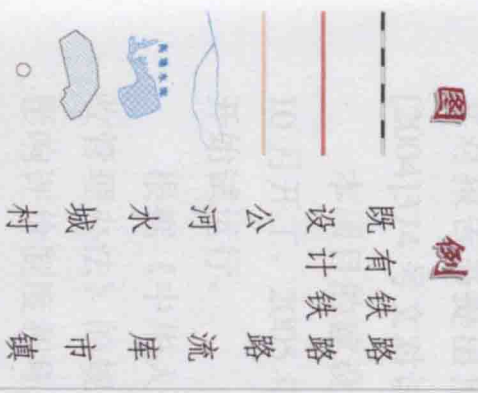 图例
既有铁路
设计铁路
公路
河流
水库
城市
村镇